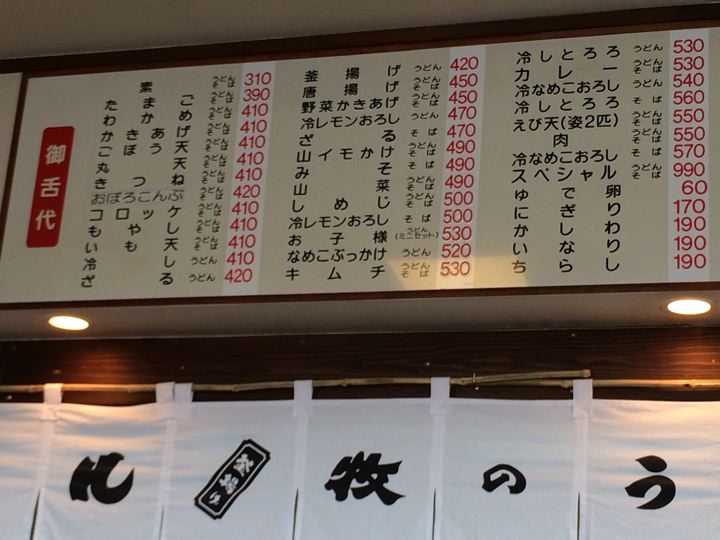 御舌代
素 うどんそば 310
たまご うどんそば 390
わかめ うどんそば 410
かきあげ うどんそば 410
ごぼう天 うどんそば 410
丸天 うどんそば 410
きつね うどんそば 410
おぼろこんぶ うどんそば 420
コロッケ うどんそば 410
もやし うどんそば 410
いも天 うどんそば 410
冷し うどん 410
ざる うどん 420
釜揚げ うどん 420
唐揚げ うどんそば 450
野菜かきあげ うどんそば 450
冷レモンおろし うどん 470
ざる そば 470
山イモかけ うどんそば 490
みそ うどんそば 490
山菜 うどんそば 490
しめじ うどんそば 500
冷レモンおろし そば 500
お子様(ミニセット) うどんそば 530
なめこぶっかけ うどん 520
キムチ うどんそば 530
冷しとろろ うどん 530
カレー うどんそば 530
冷なめこおろし うどん 540
冷しとろろ そば 560
えび天(姿2匹) うどんそば 550
肉 うどんそば 550
冷なめこおろし そば 570
スペシャル うどんそば 990
ゆで卵 60
にぎり 170
かしわ 190
いなり 190
ちらし 190
牧のう